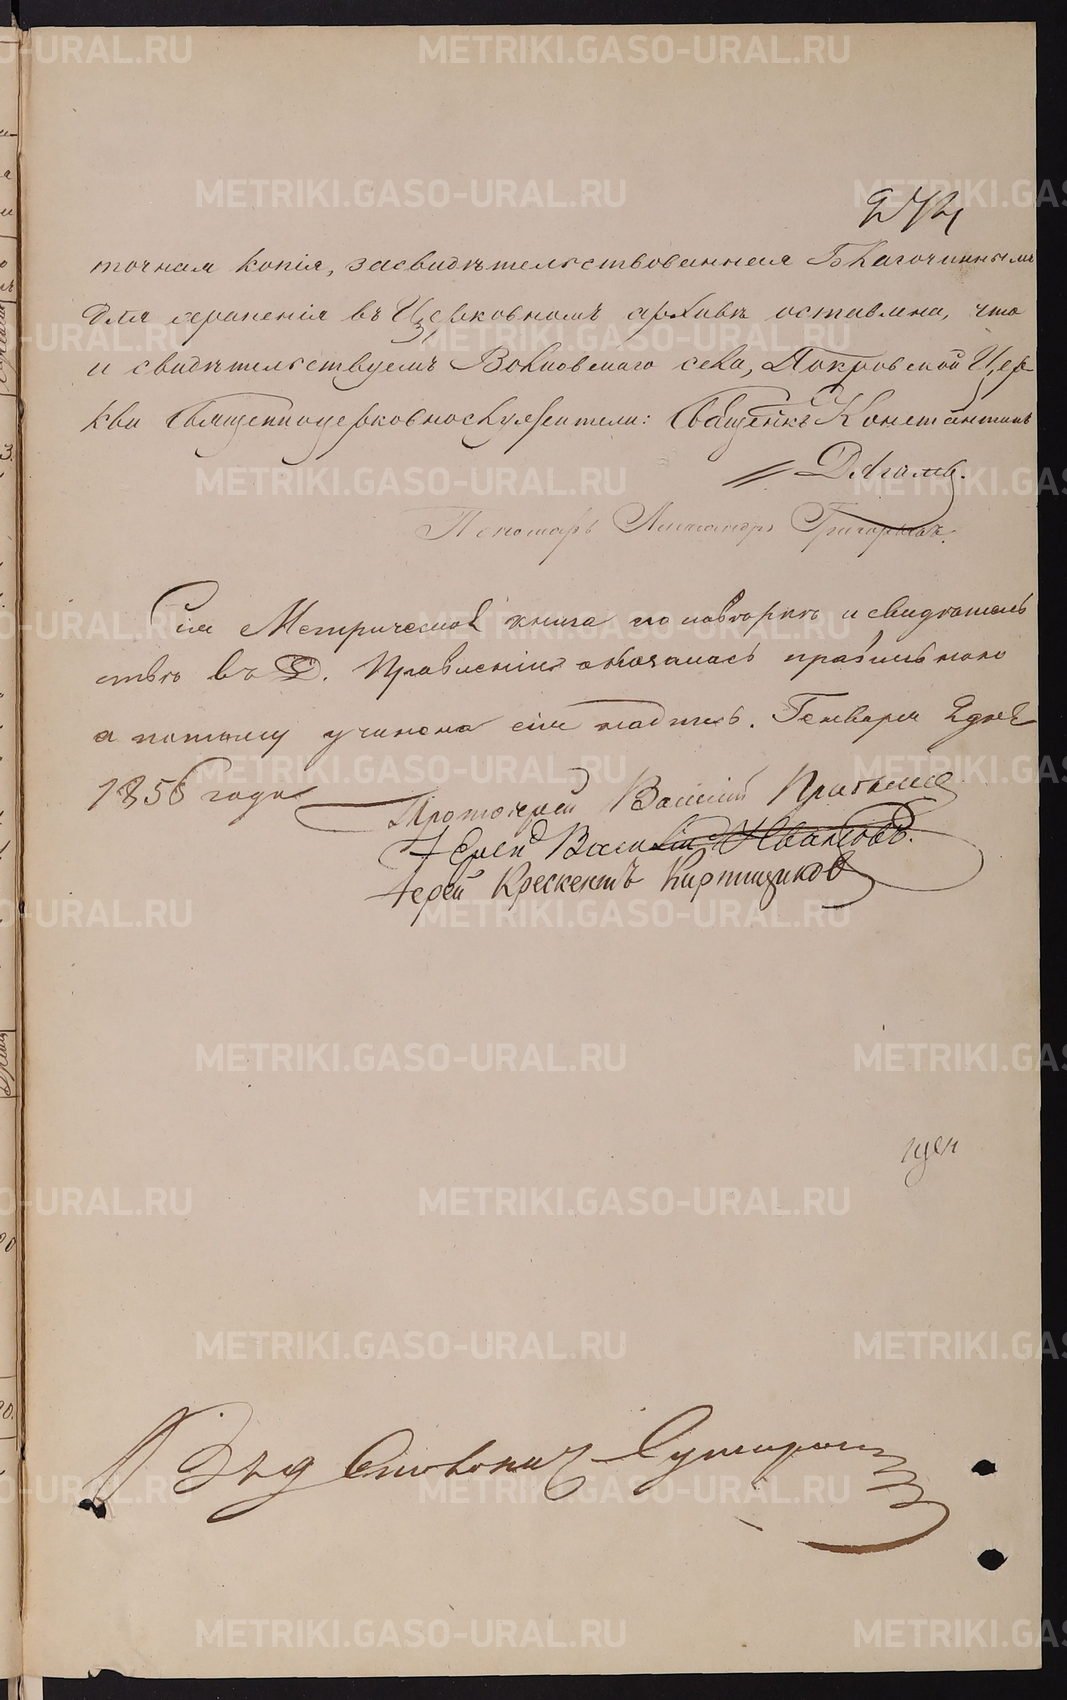 274
точная копія, засвидѣтельствованная Благочиннымъ
для храненія въ Церковномъ архивѣ оставлена, что
и свидѣтельствуемъ Волковскаго села, Покровской Цер
кви Священноцерковнослужители: Священникъ Константинъ
Дягилевъ.
Пономарь Александръ Григорьевъ.
Сія Метрическая книга по повѣркѣ и свидѣтель
ствѣ въ Д. Правленіи оказалась правильною
а потому учинена сія надпись. Генваря 2 дня
1856 года
Протоіерей Василій
Іерей Василій Ивановъ.
Іерей Крескентъ Кирпищиковъ
METRIKI.GASO-URAL.RU